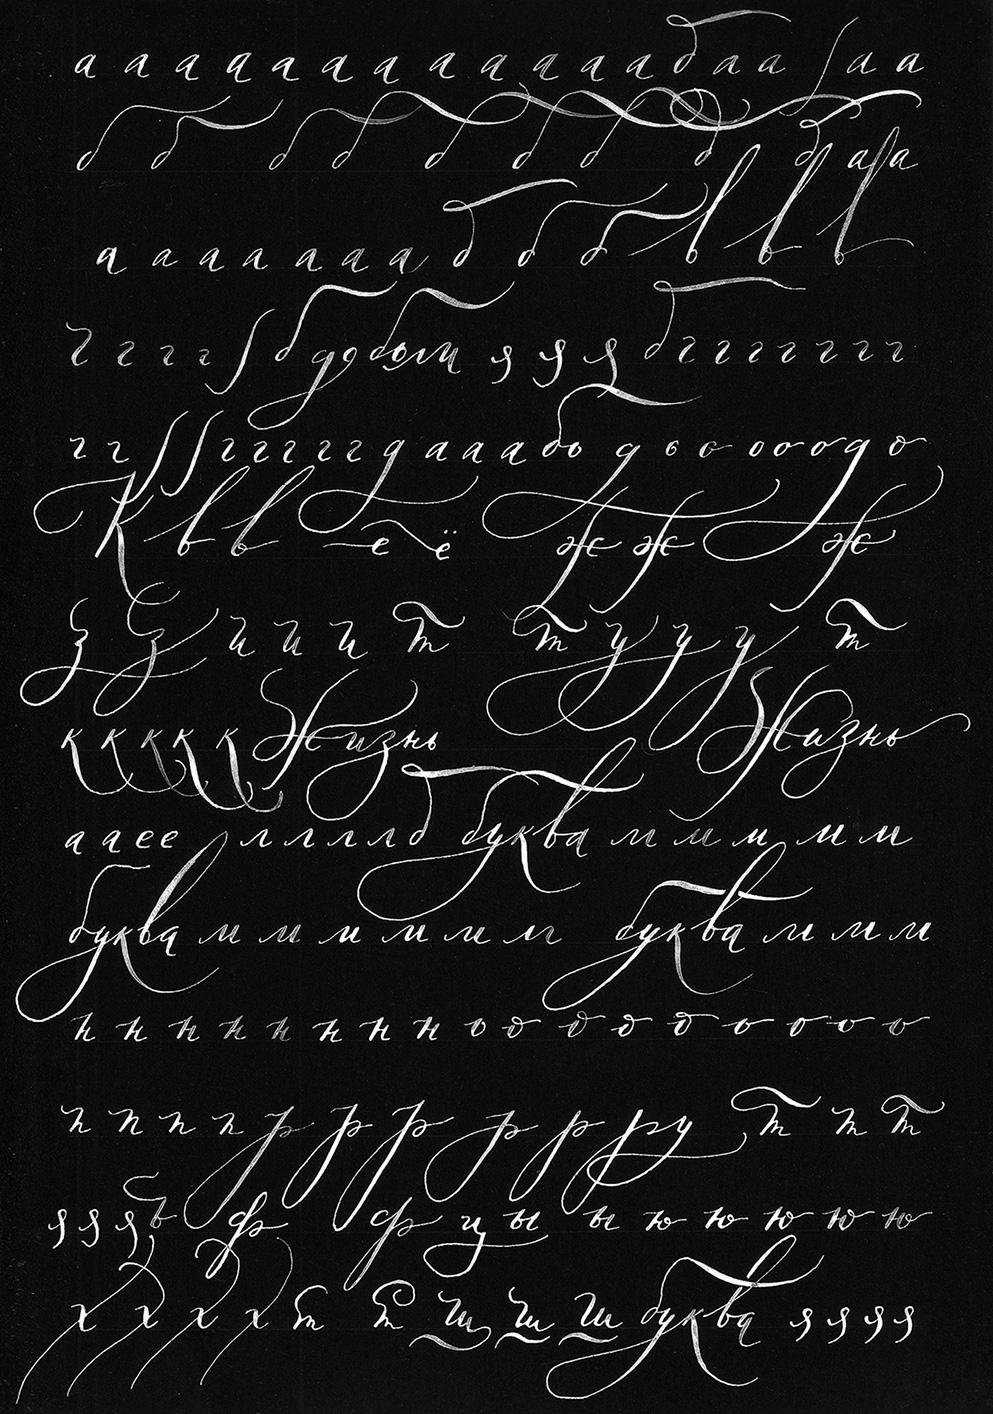 а а а а а а а а а а а а б а а а а
б б б б б б б б б а а
а а а а а а а б б б в в в
г г г г б д д бым я я я б г г г г г г г
г г г г г г г д а а а бо д о о о о о д о
К в в е ё ж ж ж
з з и и и т т у у у т
к к к к к Жизнь Жизнь
а а е е л л л л л б буква м м м м м м
буква м м м м м м м буква м м м м
н н н н н н н н о о о о о о о о о
п п п п р р р р р р у т п т
я я я ъ ф ф ц ы ы ю ю ю ю ю
х х х х т т ш ш ш буква я я я я